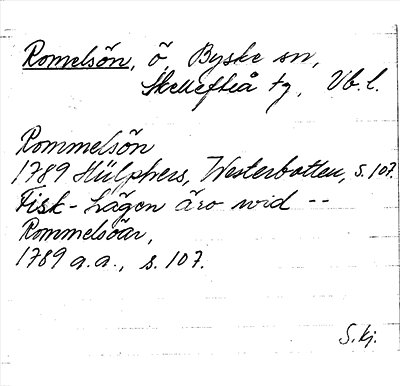 Romelsön, ö, Byske sn,
Skellefteå tg, Vb. l.
Rommelsön
1789 Hülphers, Westerbotten, s. 107.
Fisk-Lägen äro wid --
Rommelsöar,
1789 a.a., s. 107.
S. kj.